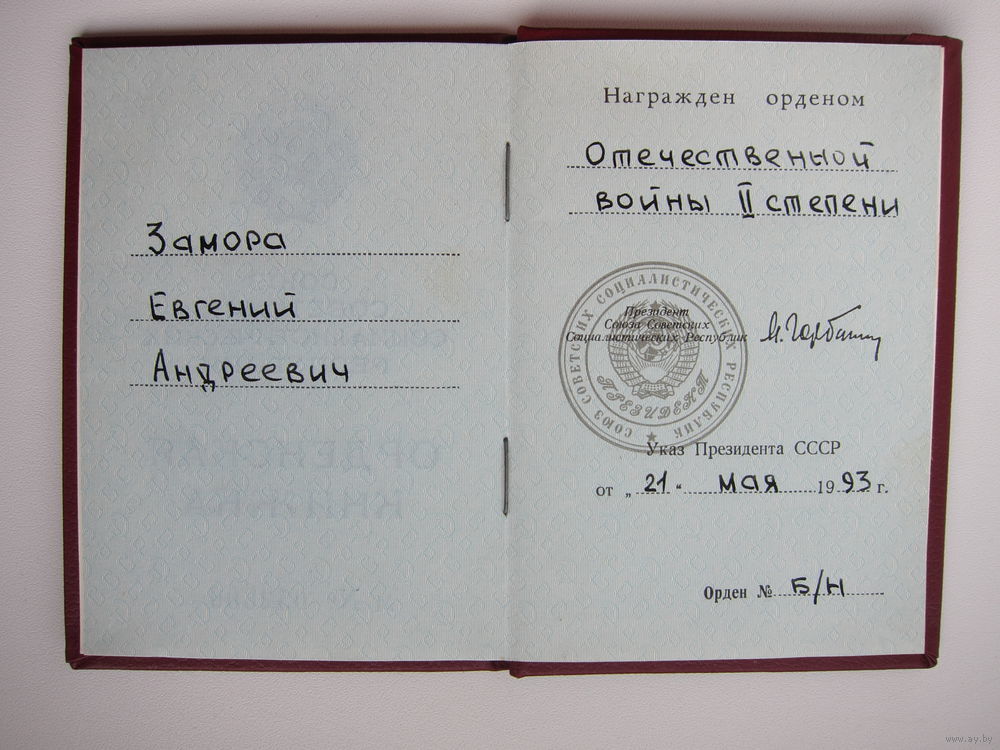 Замора
Евгений
Андреевич
Награжден орденом
Отечественной
войны II степени
СОЮЗ СОВЕТСКИХ СОЦИАЛИСТИЧЕСКИХ РЕСПУБЛИК
ПРЕЗИДЕНТ
Президент
Союза Советских
Социалистических Республик
М. Горбачев
Указ Президента СССР
от „ 21 “ мая 1993 г.
Орден № Б/Н
www.ay.by